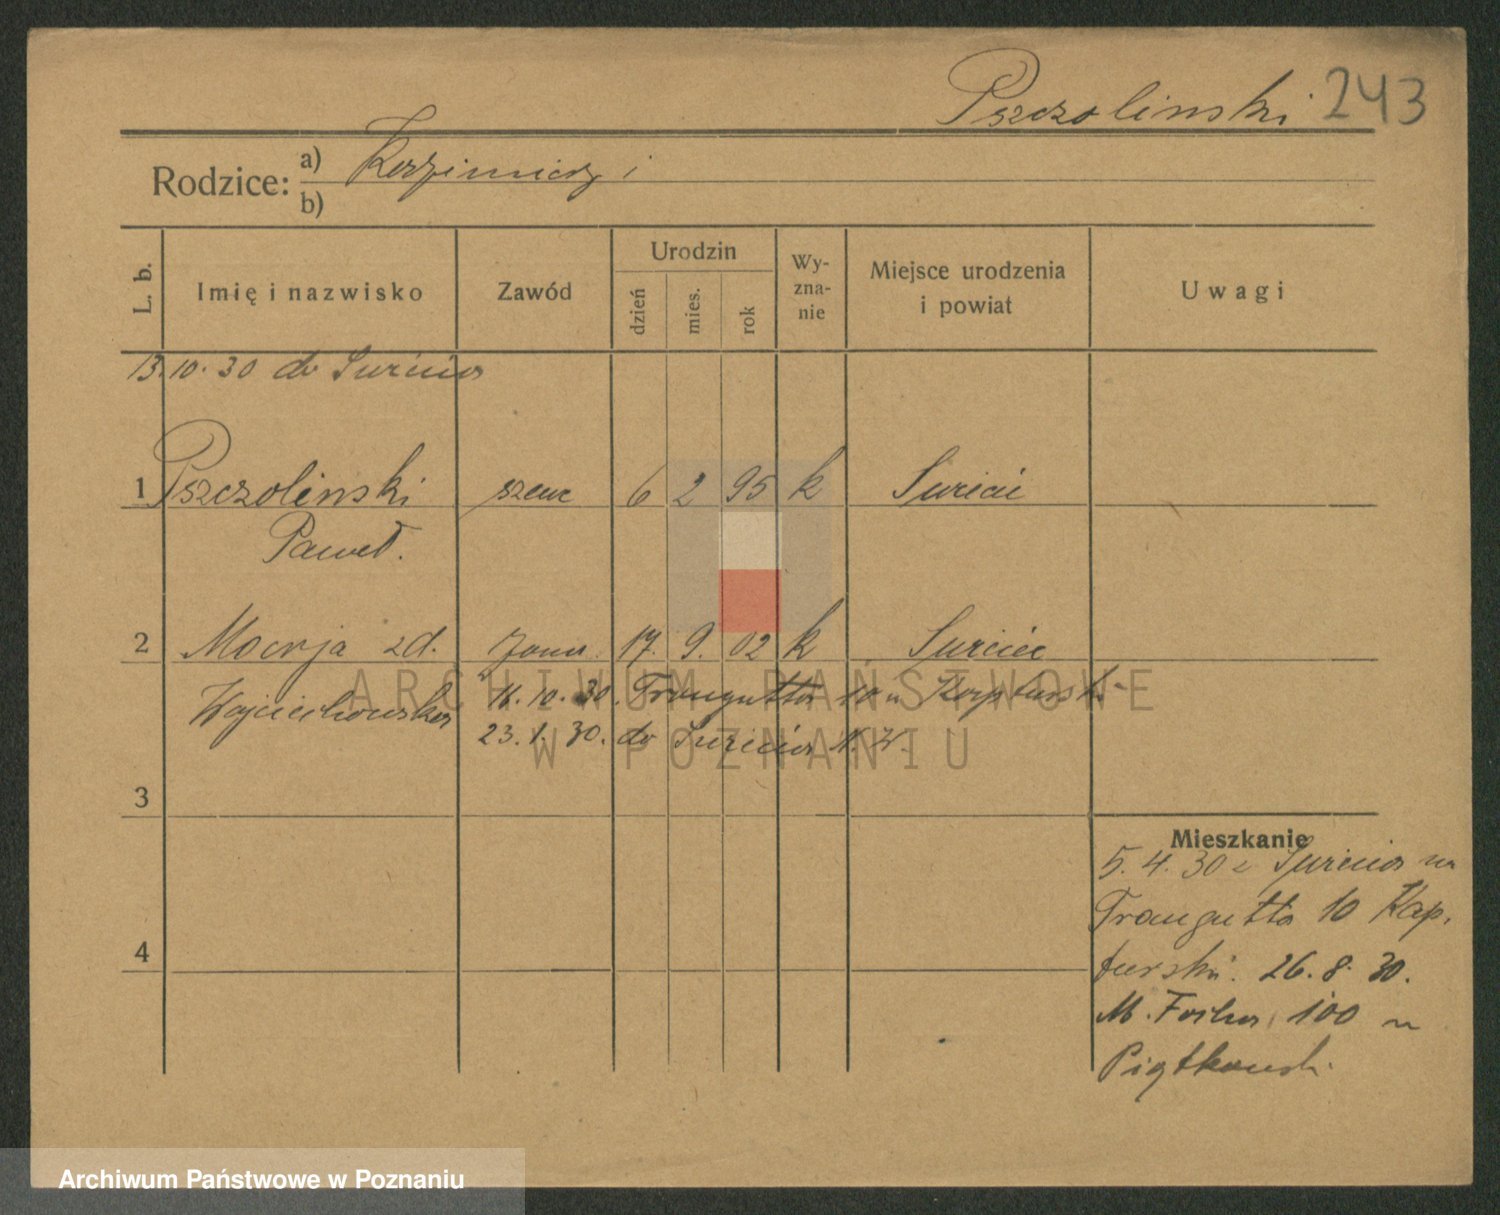 Pszczolinski 243
Rodzice: a) Kazimierz i
b)
L. b.
Imię i nazwisko
Zawód
Urodzin
dzień
mies.
rok
Wy-
zna-
nie
Miejsce urodzenia
i powiat
Uwagi
13.10.30 do
1 Pszczolinski szewc 6 2 95 k
Paweł.
2 Marja zd. żona 17. 9. 02 k
Wojciechowska
16.10.30. Traugutta 10 u Kapturski
23.1.30. do
3
Mieszkanie
5.4.30 z
Traugutta 10 Kap.
turski. 26.8.30.
M. Focha 100 u
Piątkowsk.
4
ARCHIWUM PAŃSTWOWE
W POZNANIU
Archiwum Państwowe w Poznaniu